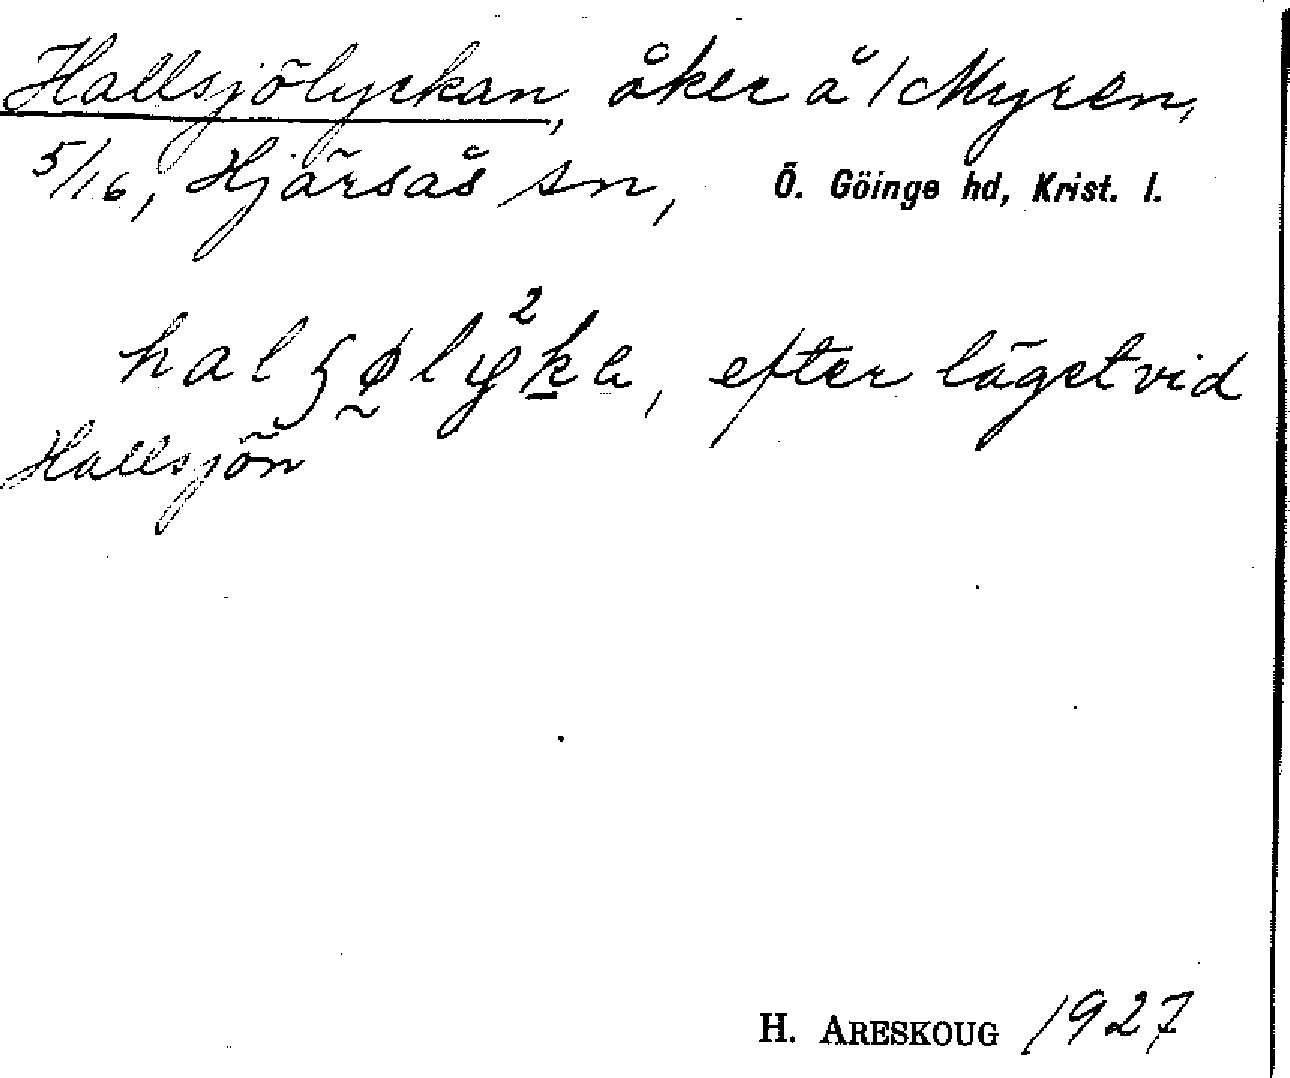 Hallsjölyckan, åker å 1 Myren,
5/16, Hjärsås sn, Ö. Göinge hd, Krist. l.
efter läget vid
Hallsjön
H. ARESKOUG 1927